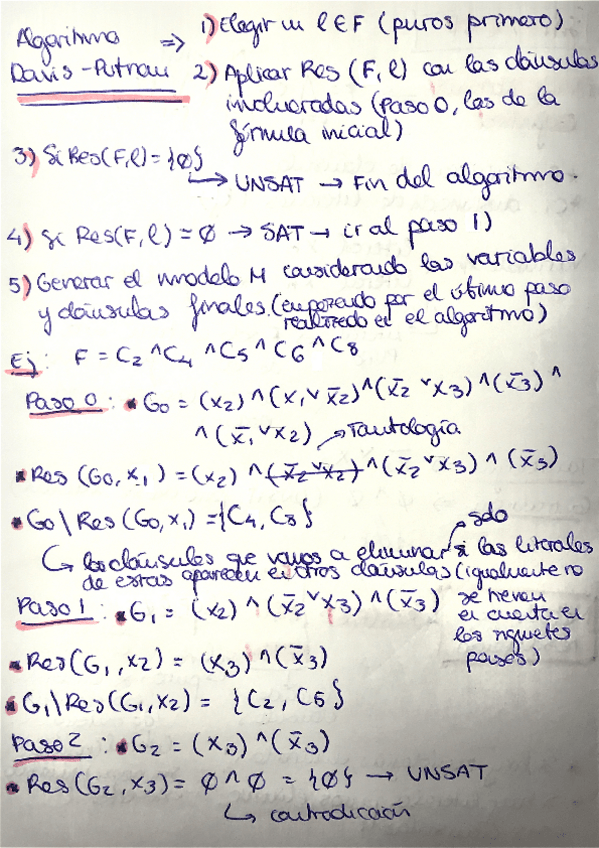 Algoritmo Davis-Putnam => 1) Elegir un l ∈ F (puros primero)
2) Aplicar Res (F, l) con las cláusulas
involucradas (Paso 0, las de la
fórmula inicial)
3) Si Res(F,l) = {∅}
↳ UNSAT → Fin del algoritmo.
4) Si Res(F,l) = ∅ → SAT → ir al paso 1)
5) Generar el modelo M considerando las variables
y cláusulas finales. (empezando por el último paso
realizado en el algoritmo)
Ej: F = C2 ^ C4 ^ C5 ^ C6 ^ C8
Paso 0: • G0 = (x2) ^ (x1 ∨ x̄2) ^ (x̄2 ∨ x3) ^ (x̄3) ^
^ (x̄1 ∨ x2) → Tautología
• Res (G0, x1) = (x2) ^ (x̄2 ∨ x2) ^ (x̄2 ∨ x3) ^ (x̄3)
• G0 \ Res (G0, x1) = {C4, C8}
solo
↳ las cláusulas que vamos a eliminar si las literales
de estas aparecen en otras cláusulas (igualmente no
se tienen
en cuenta en
los siguientes
pasos)
Paso 1: • G1 = (x2) ^ (x̄2 ∨ x3) ^ (x̄3)
• Res(G1, x2) = (x3) ^ (x̄3)
• G1 \ Res(G1, x2) = {C2, C5}
Paso 2: • G2 = (x3) ^ (x̄3)
• Res(G2, x3) = ∅ ^ ∅ = {∅} → UNSAT
↳ contradicción